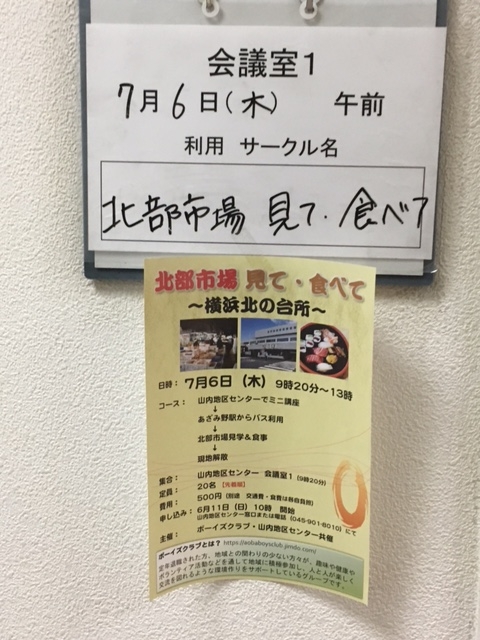 会議室1
7月6日(木) 午前
利用 サークル名
北部市場 見て・食べて
北部市場 見て・食べて
～横浜北の台所～
日時： 7月6日（木） 9時20分～13時
コース： 山内地区センターでミニ講座
↓
あざみ野駅からバス利用
↓
北部市場見学＆食事
↓
現地解散
集合： 山内地区センター 会議室1 (9時20分)
定員： 20名 【先着順】
費用： 500円 (別途 交通費・食費は各自負担)
申し込み： 6月11日（日）10時 開始
山内地区センター窓口または電話 (045-901-8010) にて
主催： ボーイズクラブ・山内地区センター共催
ボーイズクラブとは？ https://aobaboysclub.jimdo.com/
定年退職された方、地域との関わりの少ない方々が、趣味や健康や
ボランティア活動などを通して地域に積極参加し、人と人が楽しく
交流を図れるような環境作りをサポートしているグループです。